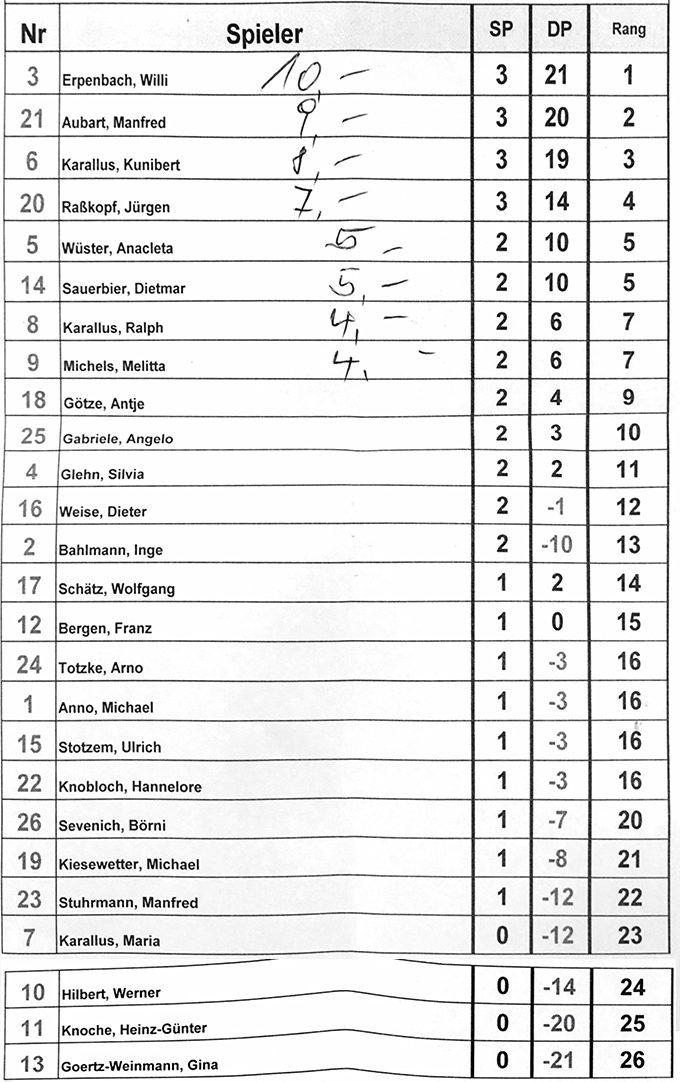 Nr Spieler SP DP Rang
3 Erpenbach, Willi 10,- 3 21 1
21 Aubart, Manfred 9,- 3 20 2
6 Karallus, Kunibert 8,- 3 19 3
20 Raßkopf, Jürgen 7,- 3 14 4
5 Wüster, Anacleta 5 - 2 10 5
14 Sauerbier, Dietmar 5,- 2 10 5
8 Karallus, Ralph 4,- 2 6 7
9 Michels, Melitta 4,- 2 6 7
18 Götze, Antje 2 4 9
25 Gabriele, Angelo 2 3 10
4 Glehn, Silvia 2 2 11
16 Weise, Dieter 2 -1 12
2 Bahlmann, Inge 2 -10 13
17 Schätz, Wolfgang 1 2 14
12 Bergen, Franz 1 0 15
24 Totzke, Arno 1 -3 16
1 Anno, Michael 1 -3 16
15 Stotzem, Ulrich 1 -3 16
22 Knobloch, Hannelore 1 -3 16
26 Sevenich, Börni 1 -7 20
19 Kiesewetter, Michael 1 -8 21
23 Stuhrmann, Manfred 1 -12 22
7 Karallus, Maria 0 -12 23
10 Hilbert, Werner 0 -14 24
11 Knoche, Heinz-Günter 0 -20 25
13 Goertz-Weinmann, Gina 0 -21 26